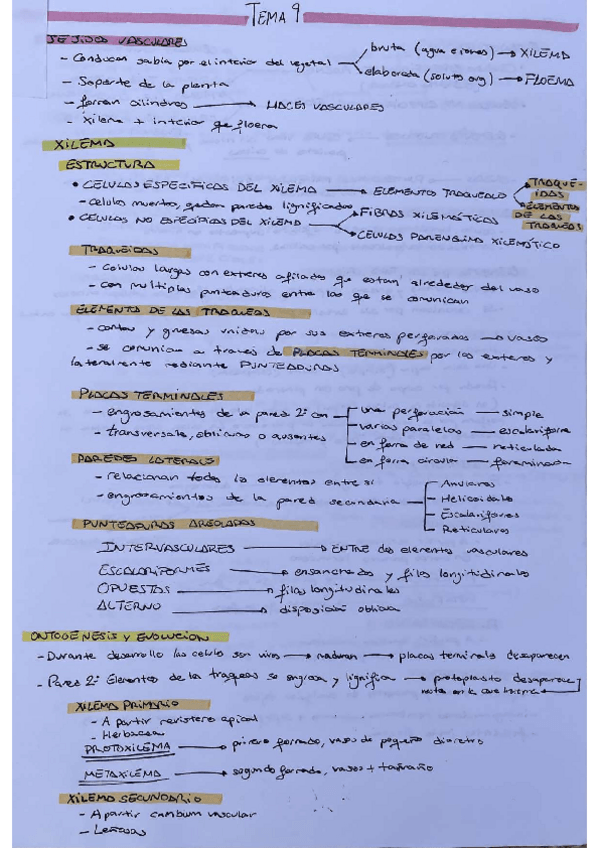 TEMA 9
TEJIDOS VASCULARES
- Conducen sabia por el interior del vegetal
bruta (agua e iones) → XILEMA
elaborada (solutos org) → FLOEMA
- Soporte de la planta
- forman cilindros → HACES VASCULARES
- Xilema + interior que floema
XILEMA
ESTRUCTURA
• CELULAS ESPECIFICAS DEL XILEMA → ELEMENTO TRAQUEALO
TRAQUE-
IDAS
ELEMENTOS
DE LAS
TRAQUEAS
- celulas muertas, quedan paredes lignificadas
• CELULAS NO ESPECIFICAS DEL XILEMA
FIBRAS XILEMÁTICAS
CELULAS PARENQUIMA XILEMÁTICO
TRAQUEIDAS
- Celulas largas con extremos afilados que estan alrededor del vaso
- con multiples punteaduras entre las que se comunican
ELEMENTO DE LAS TRAQUEAS
- cortas y gruesas unidas por sus extremos perforados → vasos
- se comunican a través de PLACAS TERMINALES por los extremos y
lateralmente mediante PUNTEADURAS
PLACAS TERMINALES
- engrosamientos de la pared 2ª con
una perforación — simple
varias paralelas — escalariforme
en forma de red — reticulada
en forma circular — foraminada
- transversales, oblicuas o ausentes
PAREDES LATERALES
- relacionan todos los elementos entre sí
- engrosamientos de la pared secundaria
Anulares
Helicoidales
Escalariformes
Reticulares
PUNTEADURAS AREOLADAS
INTERVASCULARES → ENTRE dos elementos vasculares
ESCALARIFORMES → ensanchadas y filas longitudinales
OPUESTAS → filas longitudinales
ALTERNO → disposición oblicua
ONTOGENESIS Y EVOLUCION
- Durante desarrollo las celulas son vivas → maduran → placas terminales desaparecen
- Pared 2ª Elementos de las traqueas se engrosa y lignifica → protoplasto desaparece
XILEMA PRIMARIO
- A partir meristemo apical
- Herbaceas
PROTOXILEMA → primero formado, vasos de pequeño diametro
METAXILEMA → segundo formado, vasos + tamaño
XILEMA SECUNDARIO
- A partir cambium vascular
- Leñosas